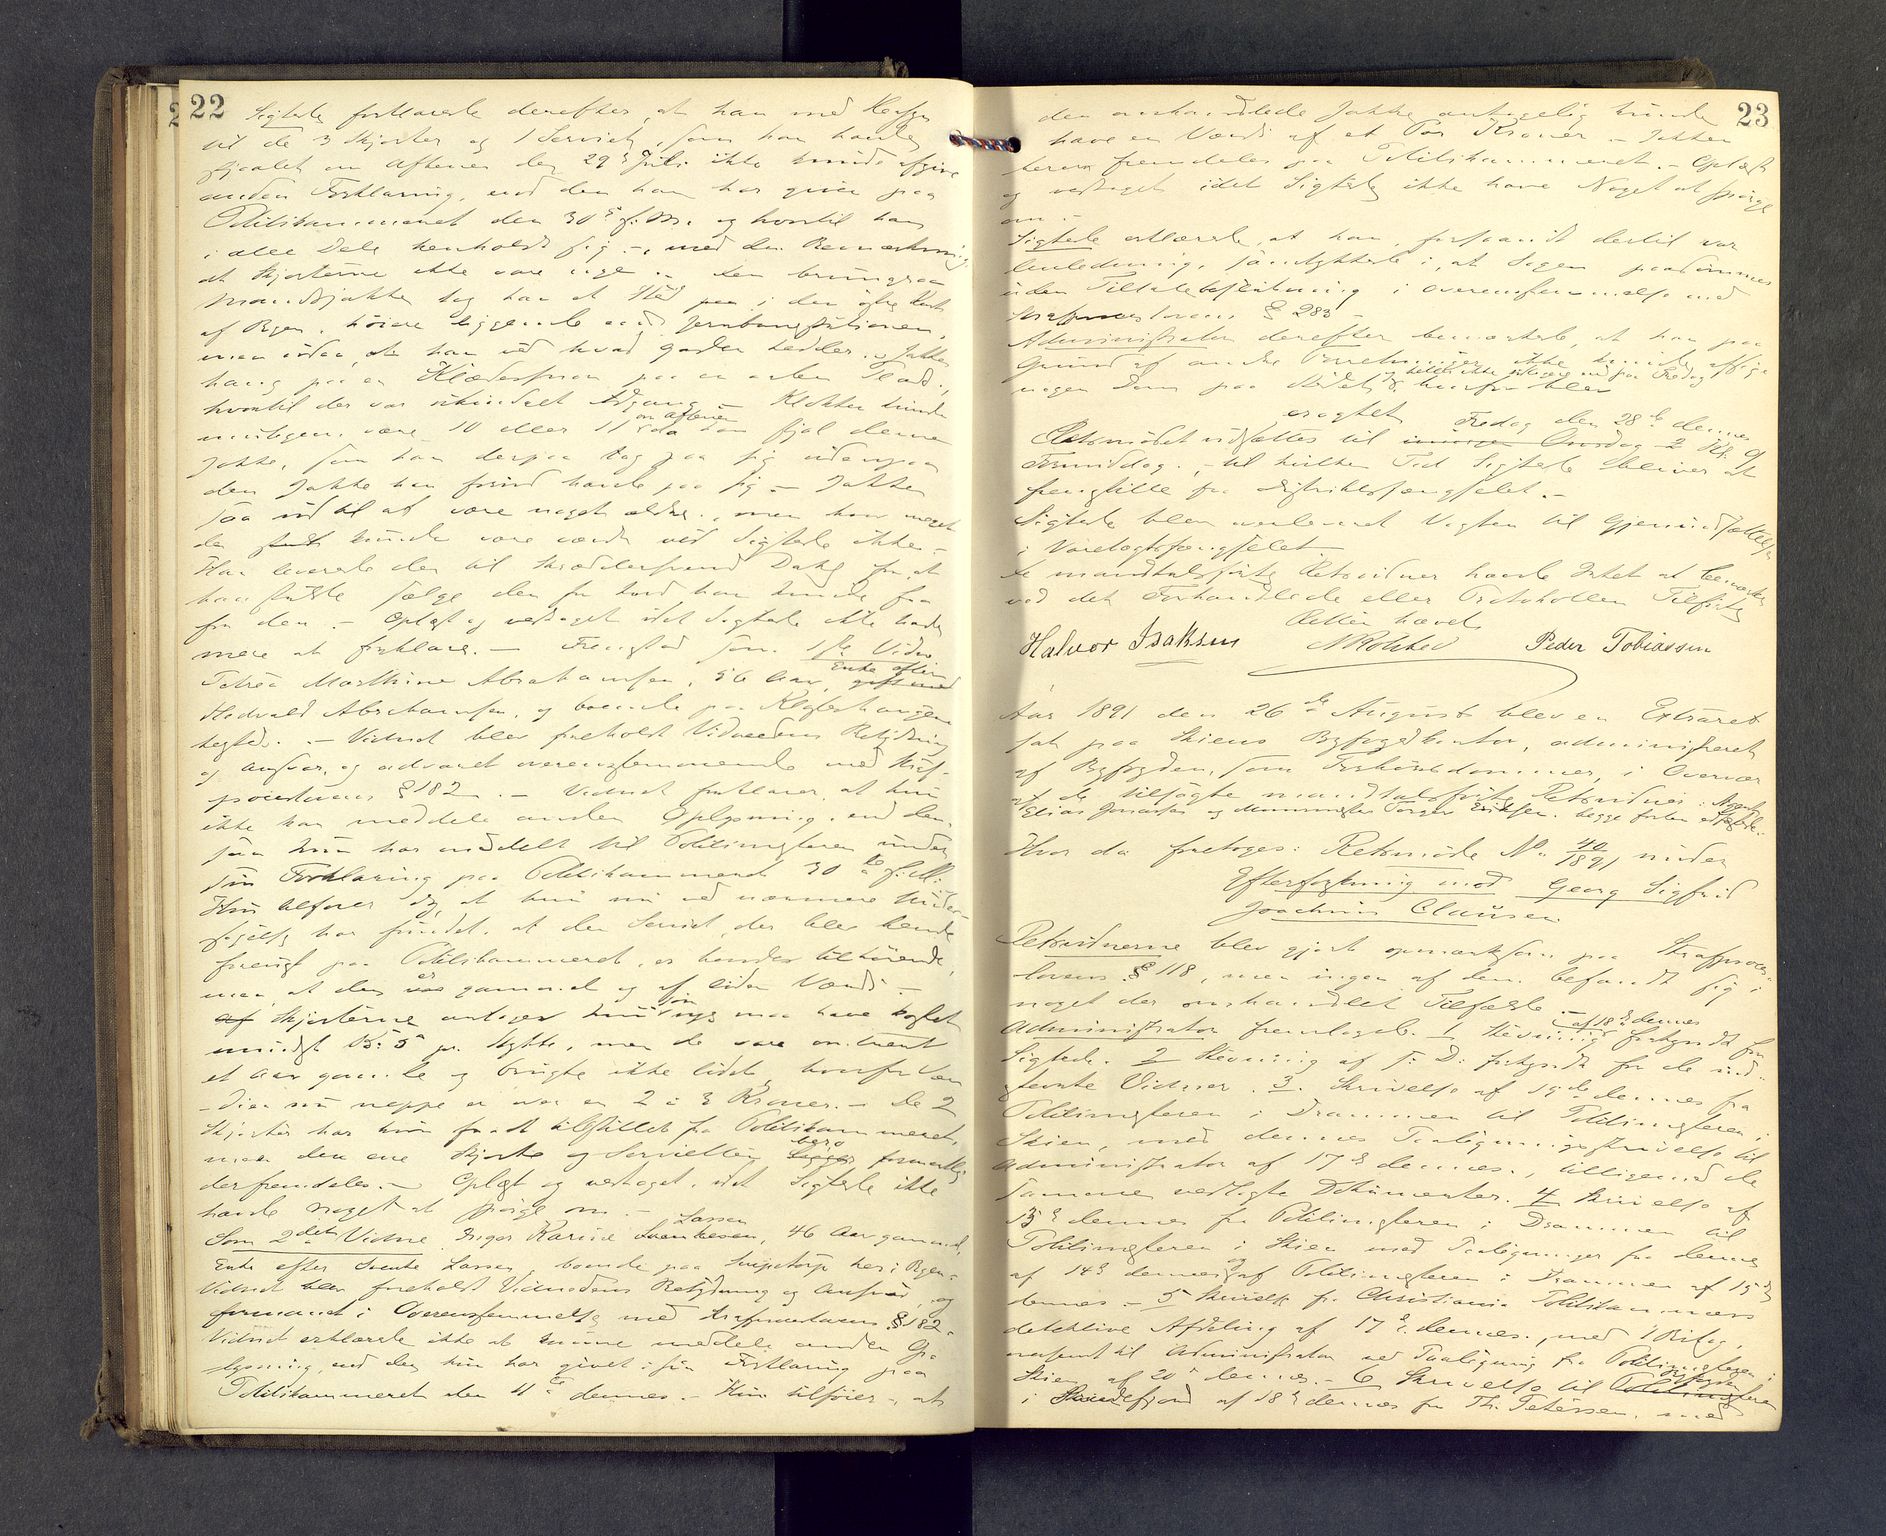 22
Sigtede forklarede derefter, at han med Hensyn
til de 3 Skjorter og 1 Serviet, som han havde
stjaalet om Aftenen den 29de Juli ikke kunde afgive
anden Forklaring, end den han har givet paa
Politikammeret den 30te f. M. og hvortil han
i alle Dele henholdt sig –, med den Bemærkning
at Skjorterne ikke vare nye. – Den brungraa
Mandsjakke tog han et Sted i den øvre Kant
af Byen, høiere liggende end Jernbanestationen,
men uden at han ved hvad Gaden hedder. Jakken
hang paa en Klædessnor paa en aaben Plads,
hvortil der var uhindret Adgang. – Klokken kunde
muligens være 10 eller 11 om Aftenen da han stjal denne
Jakke, som han derpaa tog paa sig udenpaa
den Jakke han forud havde paa sig. – Jakken
saa ud til at være noget ældre, men hvor meget
den kunde være værd ved Sigtede ikke. –
Han leverede den til Skræddersvend Dahl for at
han skulde sælge den for hvad han kunde faa
for den. – Oplæst og vedtaget idet Sigtede ikke havde
mere at forklare. – Fremstod som 1ste Vidne
Petrea Marthine Abrahamsen, 56 Aar, Enke efter
Hedvald Abrahamsen, og boende paa Klosterhaugen
. – Vidnet blev foreholdt Vidneedens Betydning
og Ansvar, og advaret overensstemmende med Straf-
proceslovens § 182. – Vidnet forklarer, at hun
ikke kan meddele anden Oplysning, end den
som hun har meddelt til Politimesteren under
sin Forklaring paa Politikammeret 30te f. M.
Hun tilføier dog, at hun nu ved nærmere Under-
søgelse har fundet, at den Serviet, der blev hende
forevist paa Politikammeret, er hendes tilhørende,
men at den er gammel og af liden Værdi. –
Skjorterne antager hun som nye maa have kostet
mindst Kr. 5 pr. Stykke, men de vare omtrent
et Aar gamle og brugte ikke lidet, hvorfor Vær-
dien nu neppe er over en 2 à 3 Kroner. – De 2
Skjorter har hun faaet tilstillet fra Politikammeret,
men den ene Skjorte og Servietten bero formentlig
der fremdeles. – Oplæst og vedtaget, idet Sigtede ikke
havde noget at spørge om. –
Som 2det Vidne Inger Karine Lassen, 46 Aar gammel,
Enke efter Svenke Lassen, boende paa Snipetorp her i Byen.
Vidnet blev foreholdt Vidneedens Betydning og Ansvar, og
formanet i Overensstemmelse med Strafproceslovens § 182.
Vidnet erklærede ikke at kunne meddele anden Op-
lysning, end den hun har givet i sin Forklaring paa
Politikammeret den 4de dennes. – Hun tilføier, at
23
den omhandlede Jakke antagelig kunde
have en Værdi af et Par Kroner. – Jakken
beror fremdeles paa Politikammeret. – Oplæst
og vedtaget idet Sigtede ikke havde Noget at spørge
om. –
Sigtede erklærede, at han, forsaavidt dertil var
Anledning, samtykkede i, at Sagen paadømmes
uden Tiltalebeslutning i Overensstemmelse med
Straffeproceslovens § 283 –
Administrator derefter bemærkede, at han paa
Grund af andre Forretninger ikke kunde afsige
nogen Dom paa Stedet og heller ikke tidligere end paa Fredag, hvorfor blev
eragtet
Retsmødet udsættes til Fredag den 28de dennes Kl. 9
Formiddag, – til hvilken Tid Sigtede bliver at
fremstille fra Distriktsfængselet. –
Sigtede blev overleveret Vagten til Gjenindsættelse
i Varetægtsfængselet.
De mandtalsførte Retsvidner havde Intet at bemærke
ved det Forhandlede eller Protokollens Tilførte
Retten hævet
Halvor Isaksen
Peder Tobiassen
Aar 1891 den 26de August blev en Extraret
sat paa Skiens Byfogedkontor, administreret
af Byfogden, som Forhørsdommer, i Overvær
af de tilsagte mandtalsførte Retsvidner: Agent
Elias Jonassen og Murmester Torger Eriksen, begge forhen edfæstede.
Hvor da foretoges: Retsmøde No. 40/1891 under
Efterforskning mod Georg Sigfrid
Joachim Clausen.
Retsvidnerne blev gjort opmærksom paa Strafproces-
lovens § 118, men ingen af dem befandt sig i
noget der omhandlet Tilfælde. –
Administrator fremlagde: 1 Stevning af 18de dennes forkyndt for
Sigtede. 2 Stevning af s. D. forkyndt for de ind-
stevnte Vidner. 3. Skrivelse af 19de dennes fra
Politimesteren i Drammen til Politimesteren i
Skien, med dennes Paategningsskrivelse til
Administrator af 17de dennes, tilligemed de
samme vedlagte Dokumenter. 4 Skrivelse af
15de dennes fra Politimesteren i Drammen til
Politimesteren i Skien med Paategninger fra denne
af 14de dennes og af Politimesteren i Drammen af 15de
dennes – 5 Skrivelse fra Christiania Politikammers
detektive Afdeling af 17de dennes, med 1 Bilag,
oversendt til Administrator ved Paategning fra Politimesteren i
Skien af 20de dennes. – 6 Skrivelse til Byfogden
i Sandefjord af 18de dennes fra Th. Petersen, med